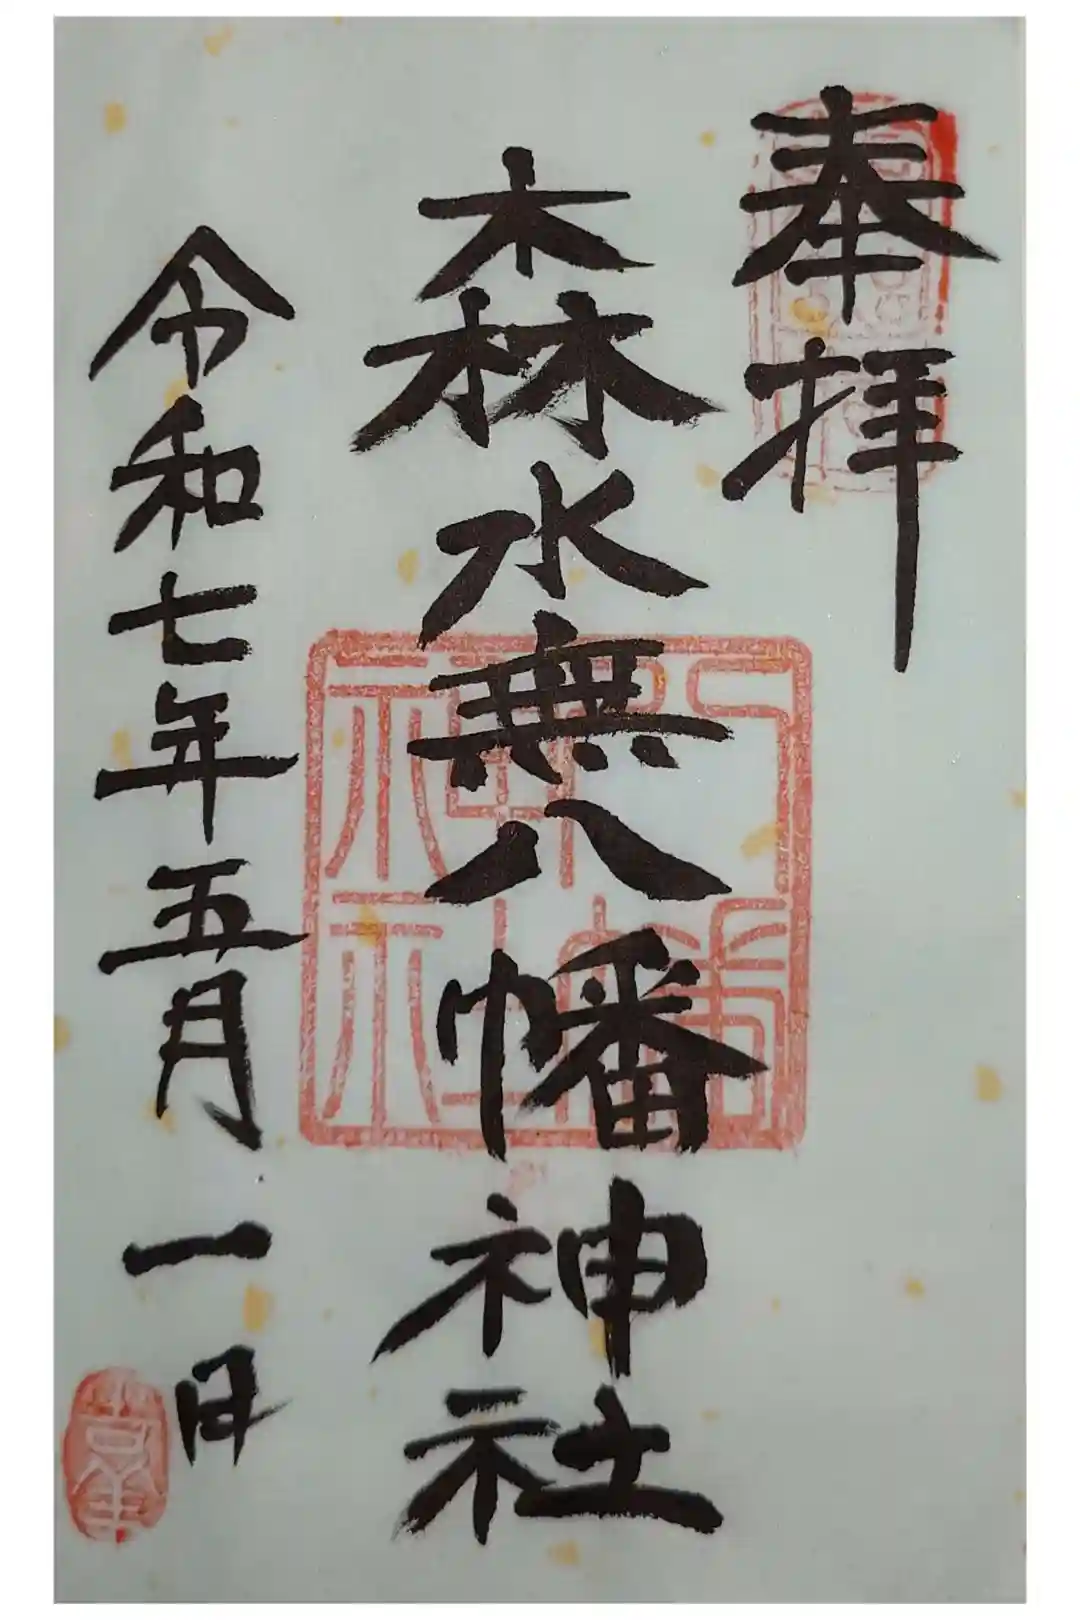 奉拝
森水無八幡神社
令和七年五月一日
八幡神社